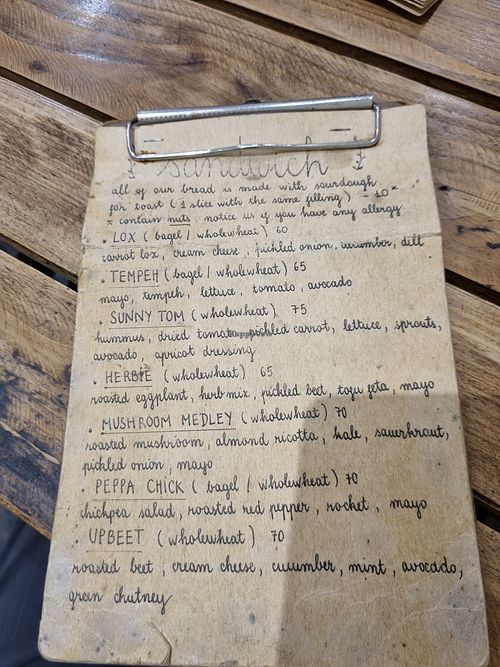 Sandwich
all of our bread is made with sourdough
for toast (1 slice with the same filling) - 10*
* contain nuts, notice us if you have any allergy
. LOX (bagel / wholewheat) 60
carrot lox, cream cheese, pickled onion, cucumber, dill
. TEMPEH (bagel / wholewheat) 65
mayo, tempeh, lettuce, tomato, avocado
. SUNNY TOM (wholewheat) 75
hummus, dried tomato, pickled carrot, lettuce, sprouts,
avocado, apricot dressing
. HERBIE (wholewheat) 65
roasted eggplant, herb mix, pickled beet, tofu feta, mayo
. MUSHROOM MEDLEY (wholewheat) 70
roasted mushroom, almond ricotta, kale, sauerkraut,
pickled onion, mayo
. PEPPA CHICK (bagel / wholewheat) 70
chickpea salad, roasted red pepper, rocket, mayo
. UPBEET (wholewheat) 70
roasted beet, cream cheese, cucumber, mint, avocado,
green chutney